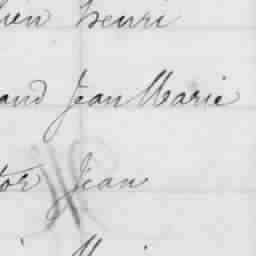 ien Henri
and Jean Marie
tor Jean